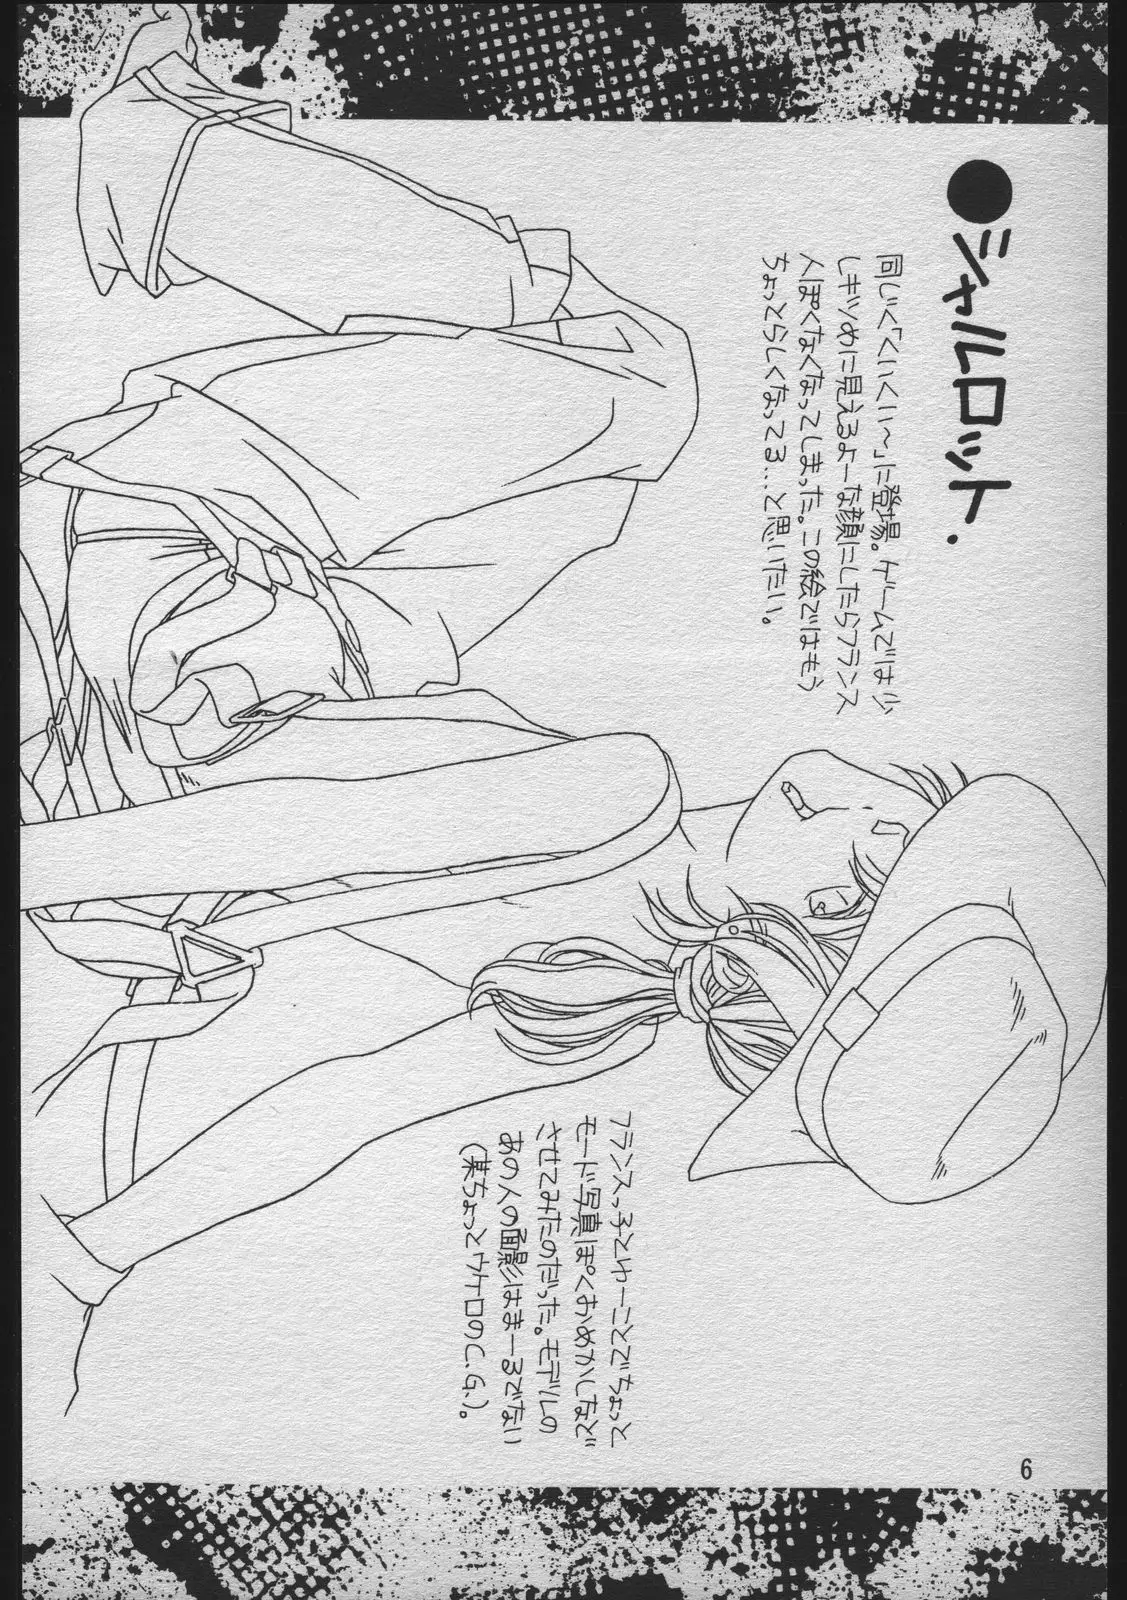 ●シャルロット.
同じく「くいくい～」に登場。ゲームでは少
しキツめに見えるよーな顔にしたらフランス
人ぽくなくなってしまった。この絵ではもう
ちょっとらしくなってる…と思いたい。
フランスっ子とゆーことでちょっと
モード写真ぽくおめかしなど
させてみたのだった。モデルの
あの人の面影はまーるでない
(某ちょっとウケロのC.G.)。
6